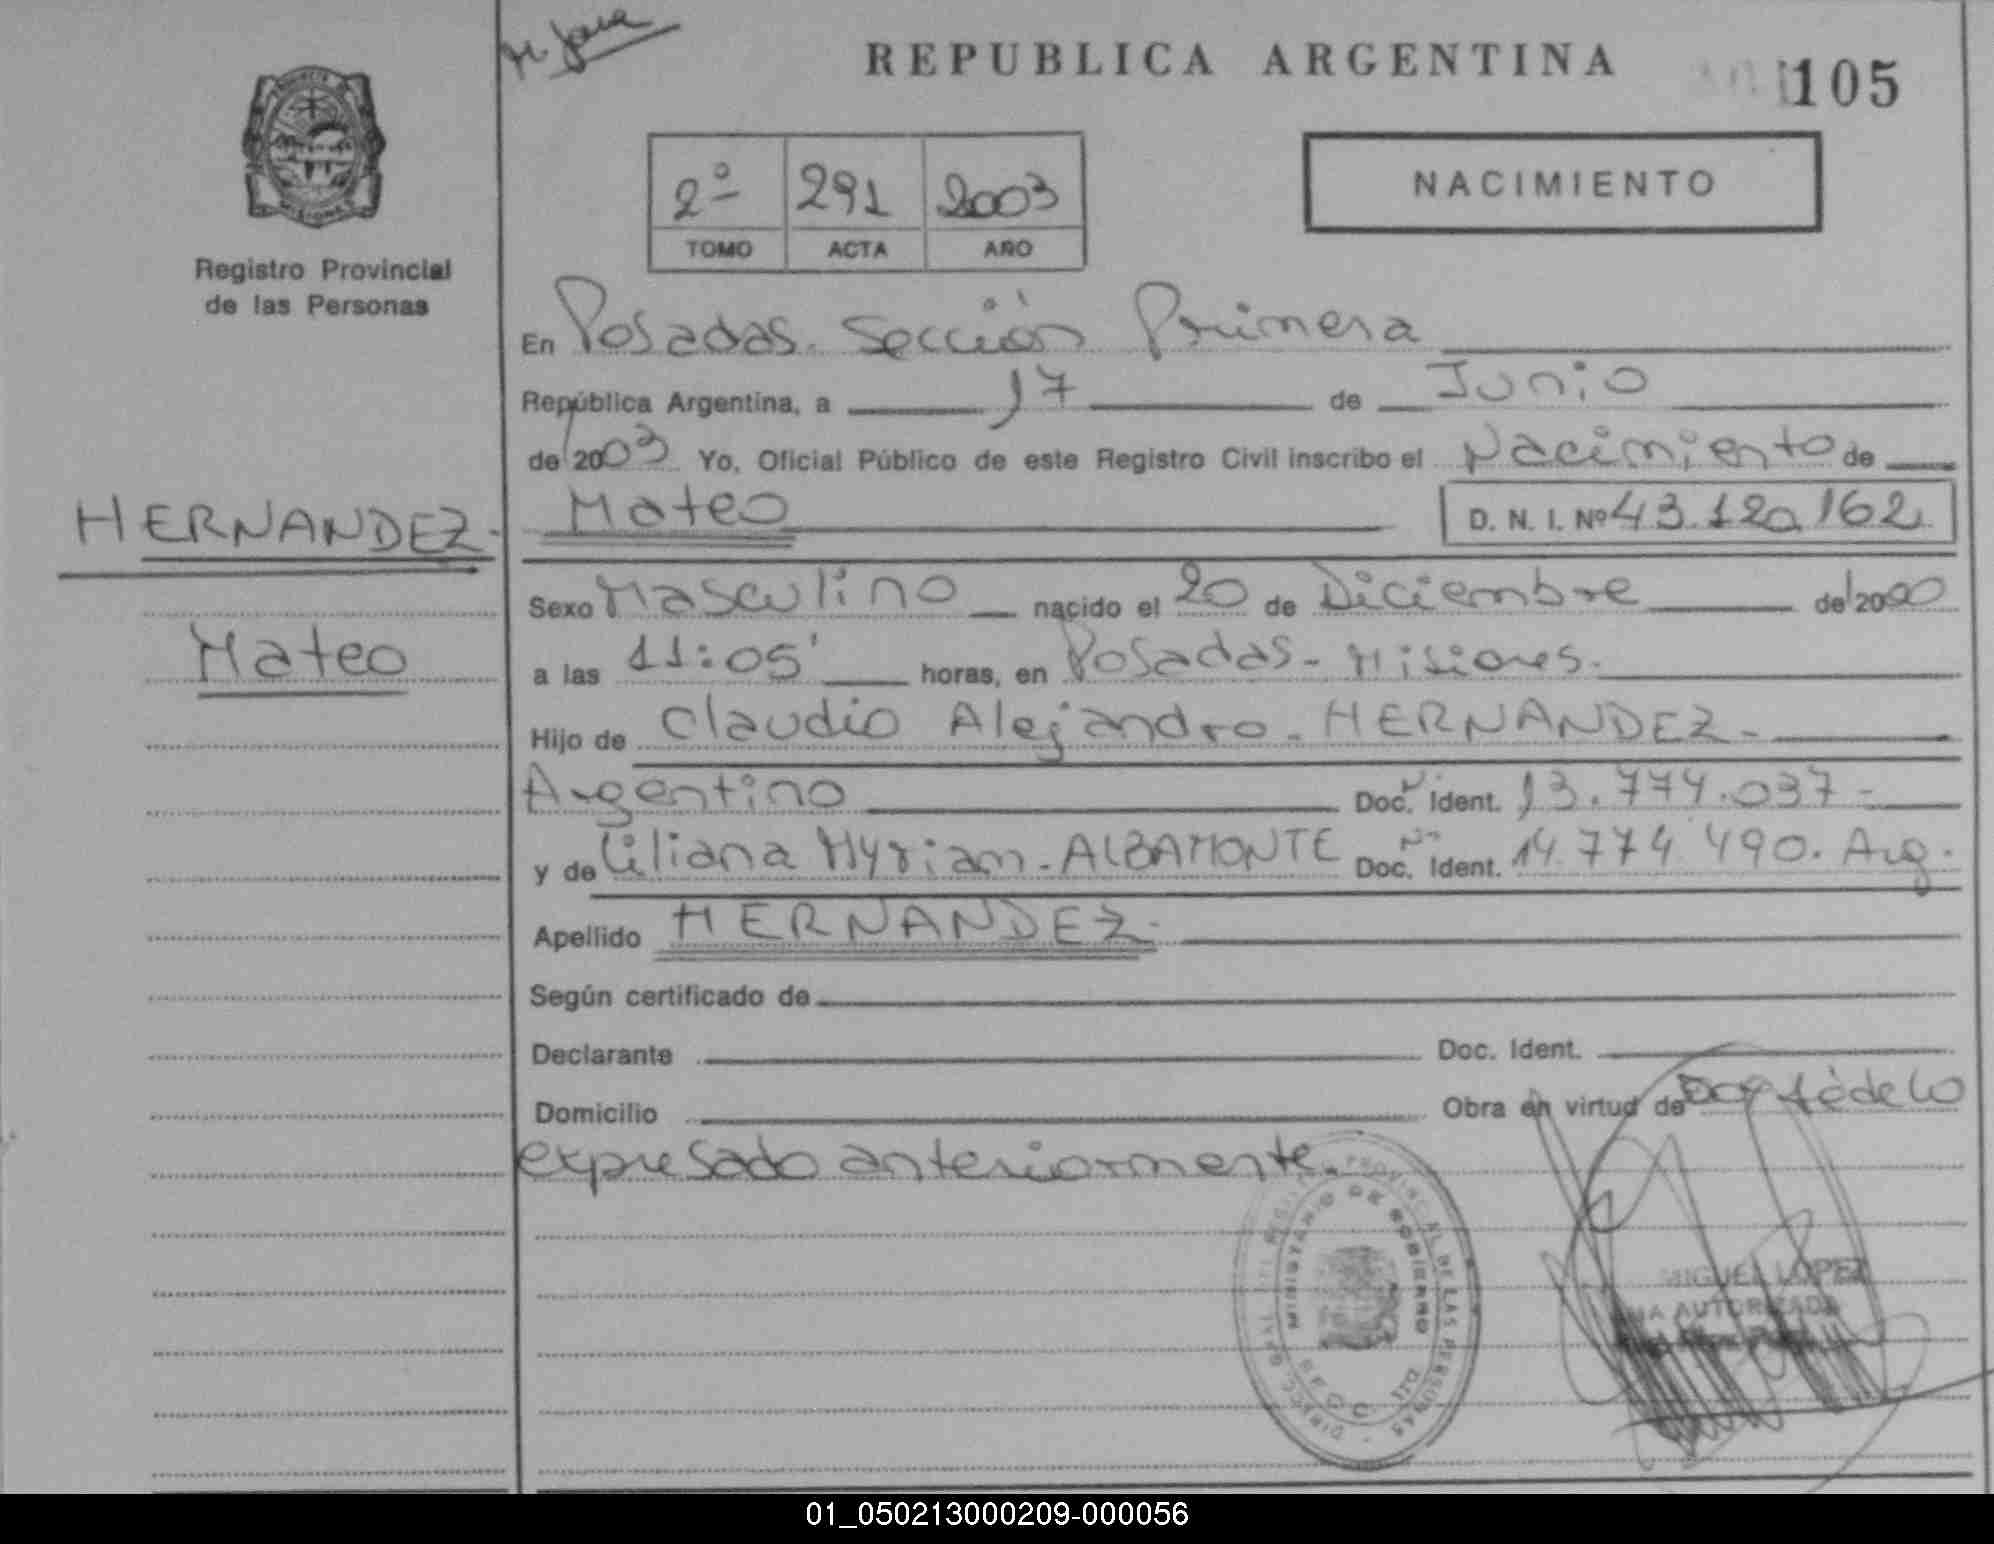 REPUBLICA ARGENTINA
105
2º 291 2003
TOMO ACTA AÑO
NACIMIENTO
MISIONES
Registro Provincial
de las Personas
En Posadas. Sección Primera
República Argentina, a 17 de Junio
de 2003 Yo, Oficial Público de este Registro Civil inscribo el Nacimiento de
HERNANDEZ-
Mateo D. N. I. Nº 43.120.162
Sexo Masculino nacido el 20 de Diciembre de 2000
Mateo
a las 11:05' horas, en Posadas - Misiones.
Hijo de Claudio Alejandro - HERNANDEZ -
Argentino Doc. Ident. 13.774.037-
y de Liliana Myriam - ALBAMONTE Doc. Ident. 14.774.490. Arg.
Apellido HERNANDEZ-
Según certificado de
Declarante Doc. Ident.
Domicilio Obra en virtud de
expresado anteriormente.
PROVINCIAL DE LAS PERSONAS
MINISTERIO DE GOBIERNO
MIGUEL LOPEZ
AUTORIZADA
01_050213000209-000056